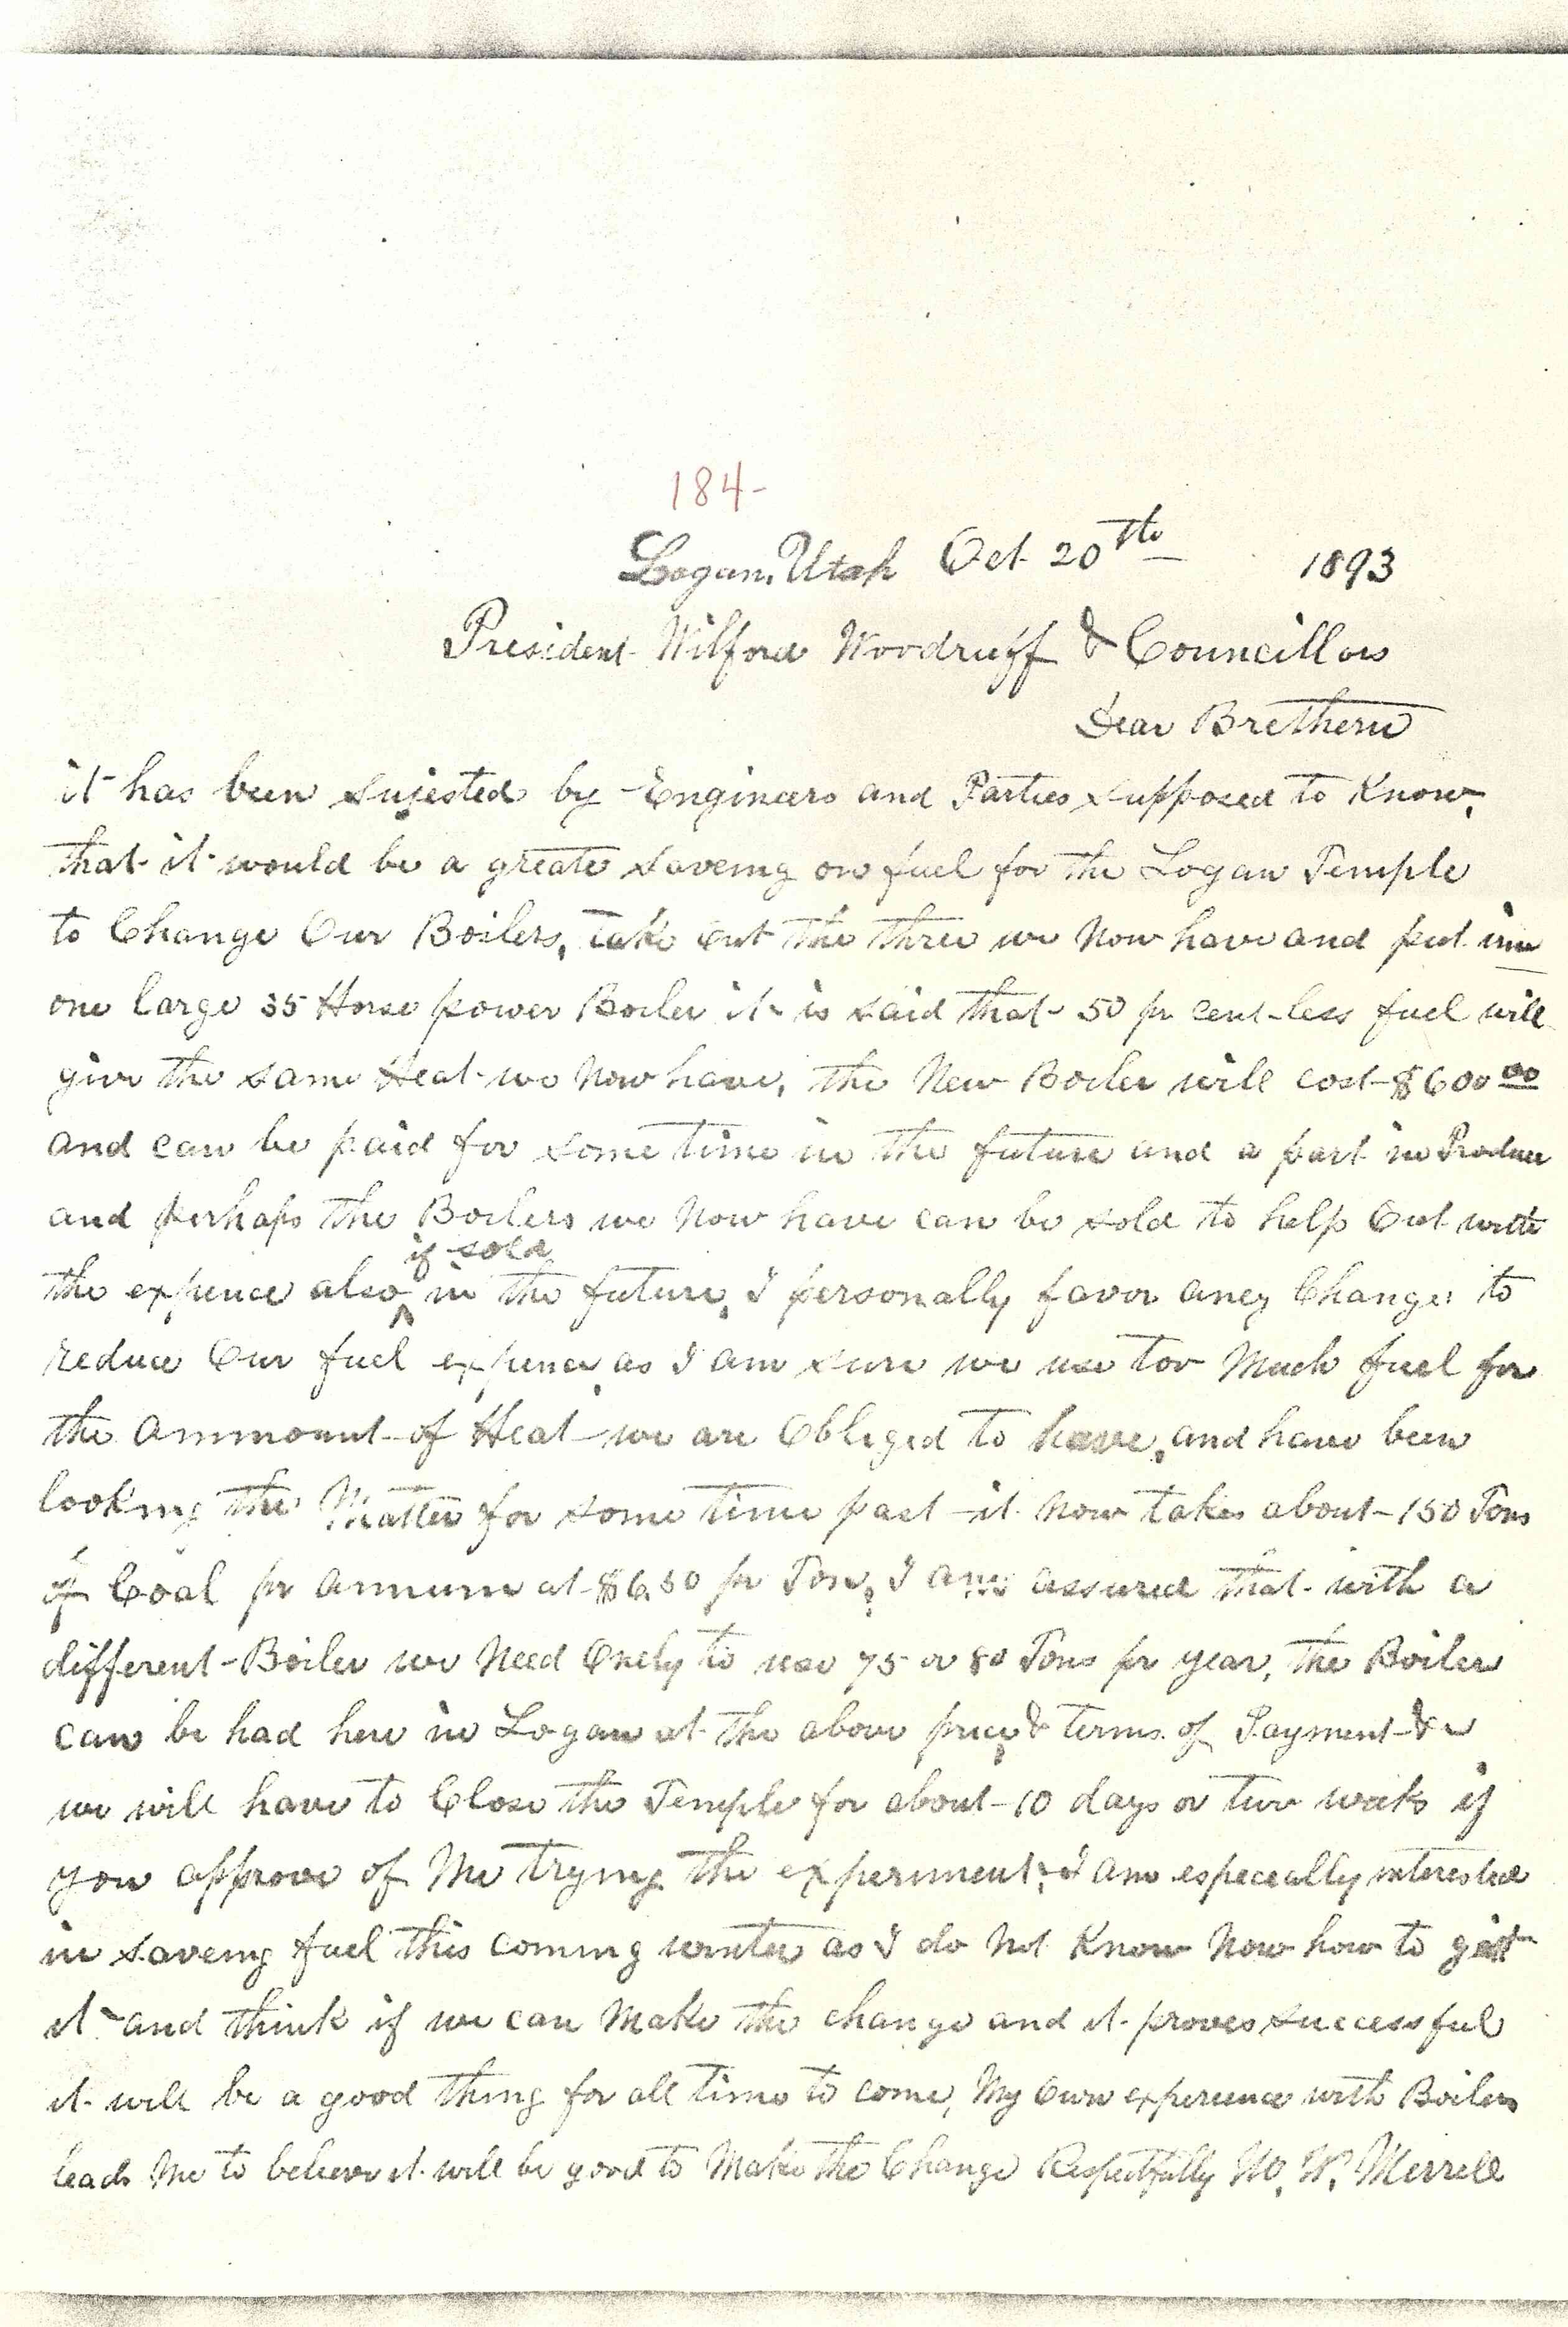 184-
Logan, Utah Oct. 20th 1893
President Wilford Woodruff & Councillors
Dear Brethern
it has been sujested by Engineers and Parties supposed to Know,
that it would be a greate saveing on fuel for the Logan Temple
to Change Our Boilers, take out the three we Now have and put inn
one large 35 Horse power Boiler it is said that 50 pr cent less fuel will
give the same Heat we Now have, the New Boiler will cost $600 00
and can be paid for some time in the future and a part in Produce
and perhaps the Boilers we Now have can be sold to help Out with
if sold
the expence also in the future, I personally favor aney Change to
reduce Our fuel expence, as I am sure we use too Much fuel for
the Ammount of Heat we are Obliged to have, and have been
looking the Matter for some time past it Now takes about 150 Tons
of Coal pr Annum at $6.50 pr Ton, I am assured that with a
different Boiler we Need Onely to use 75 or 80 Tons pr year, the Boiler
can be had here in Logan at the above price & terms of Payment &c
we will have to Close the Temple for about 10 days or two weeks if
you approve of Me trying the experiment, I am especeally interested
in saveing fuel this coming winter as I do Not Know Now how to get
it and think if we can Make the change and it proves successful
it will be a good thing for all time to come, My Own experience with Boilers
leads Me to believe it will be good to Make the Change Respectfully M. W. Merrell